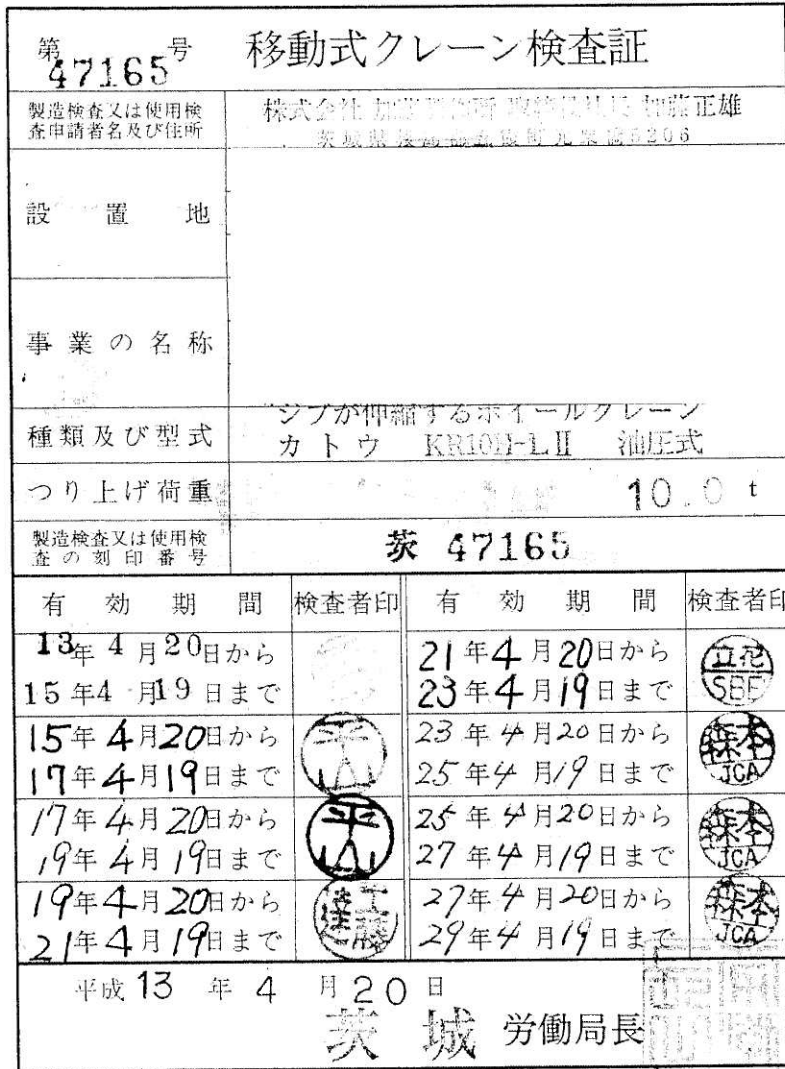 第 47165 号
移動式クレーン検査証
製造検査又は使用検
査申請者名及び住所
株式会社 加藤製作所 取締役社長 加藤正雄
茨城県 5206
設置地
事業の名称
種類及び型式
ジブが伸縮するホイールクレーン
カトウ KR10H-LⅡ 油圧式
つり上げ荷重
10.0 t
製造検査又は使用検
査の刻印番号
茨 47165
有効期間 検査者印 有効期間 検査者印
13年 4月20日から
15年4月19日まで
15年4月20日から
17年4月19日まで
平山
17年4月20日から
19年4月19日まで
平山
19年4月20日から
21年4月19日まで
21年4月20日から
23年4月19日まで
立花
SBE
23年4月20日から
25年4月19日まで
森本
JCA
25年4月20日から
27年4月19日まで
森本
JCA
27年4月20日から
29年4月19日まで
森本
JCA
平成13年4月20日
茨城 労働局長